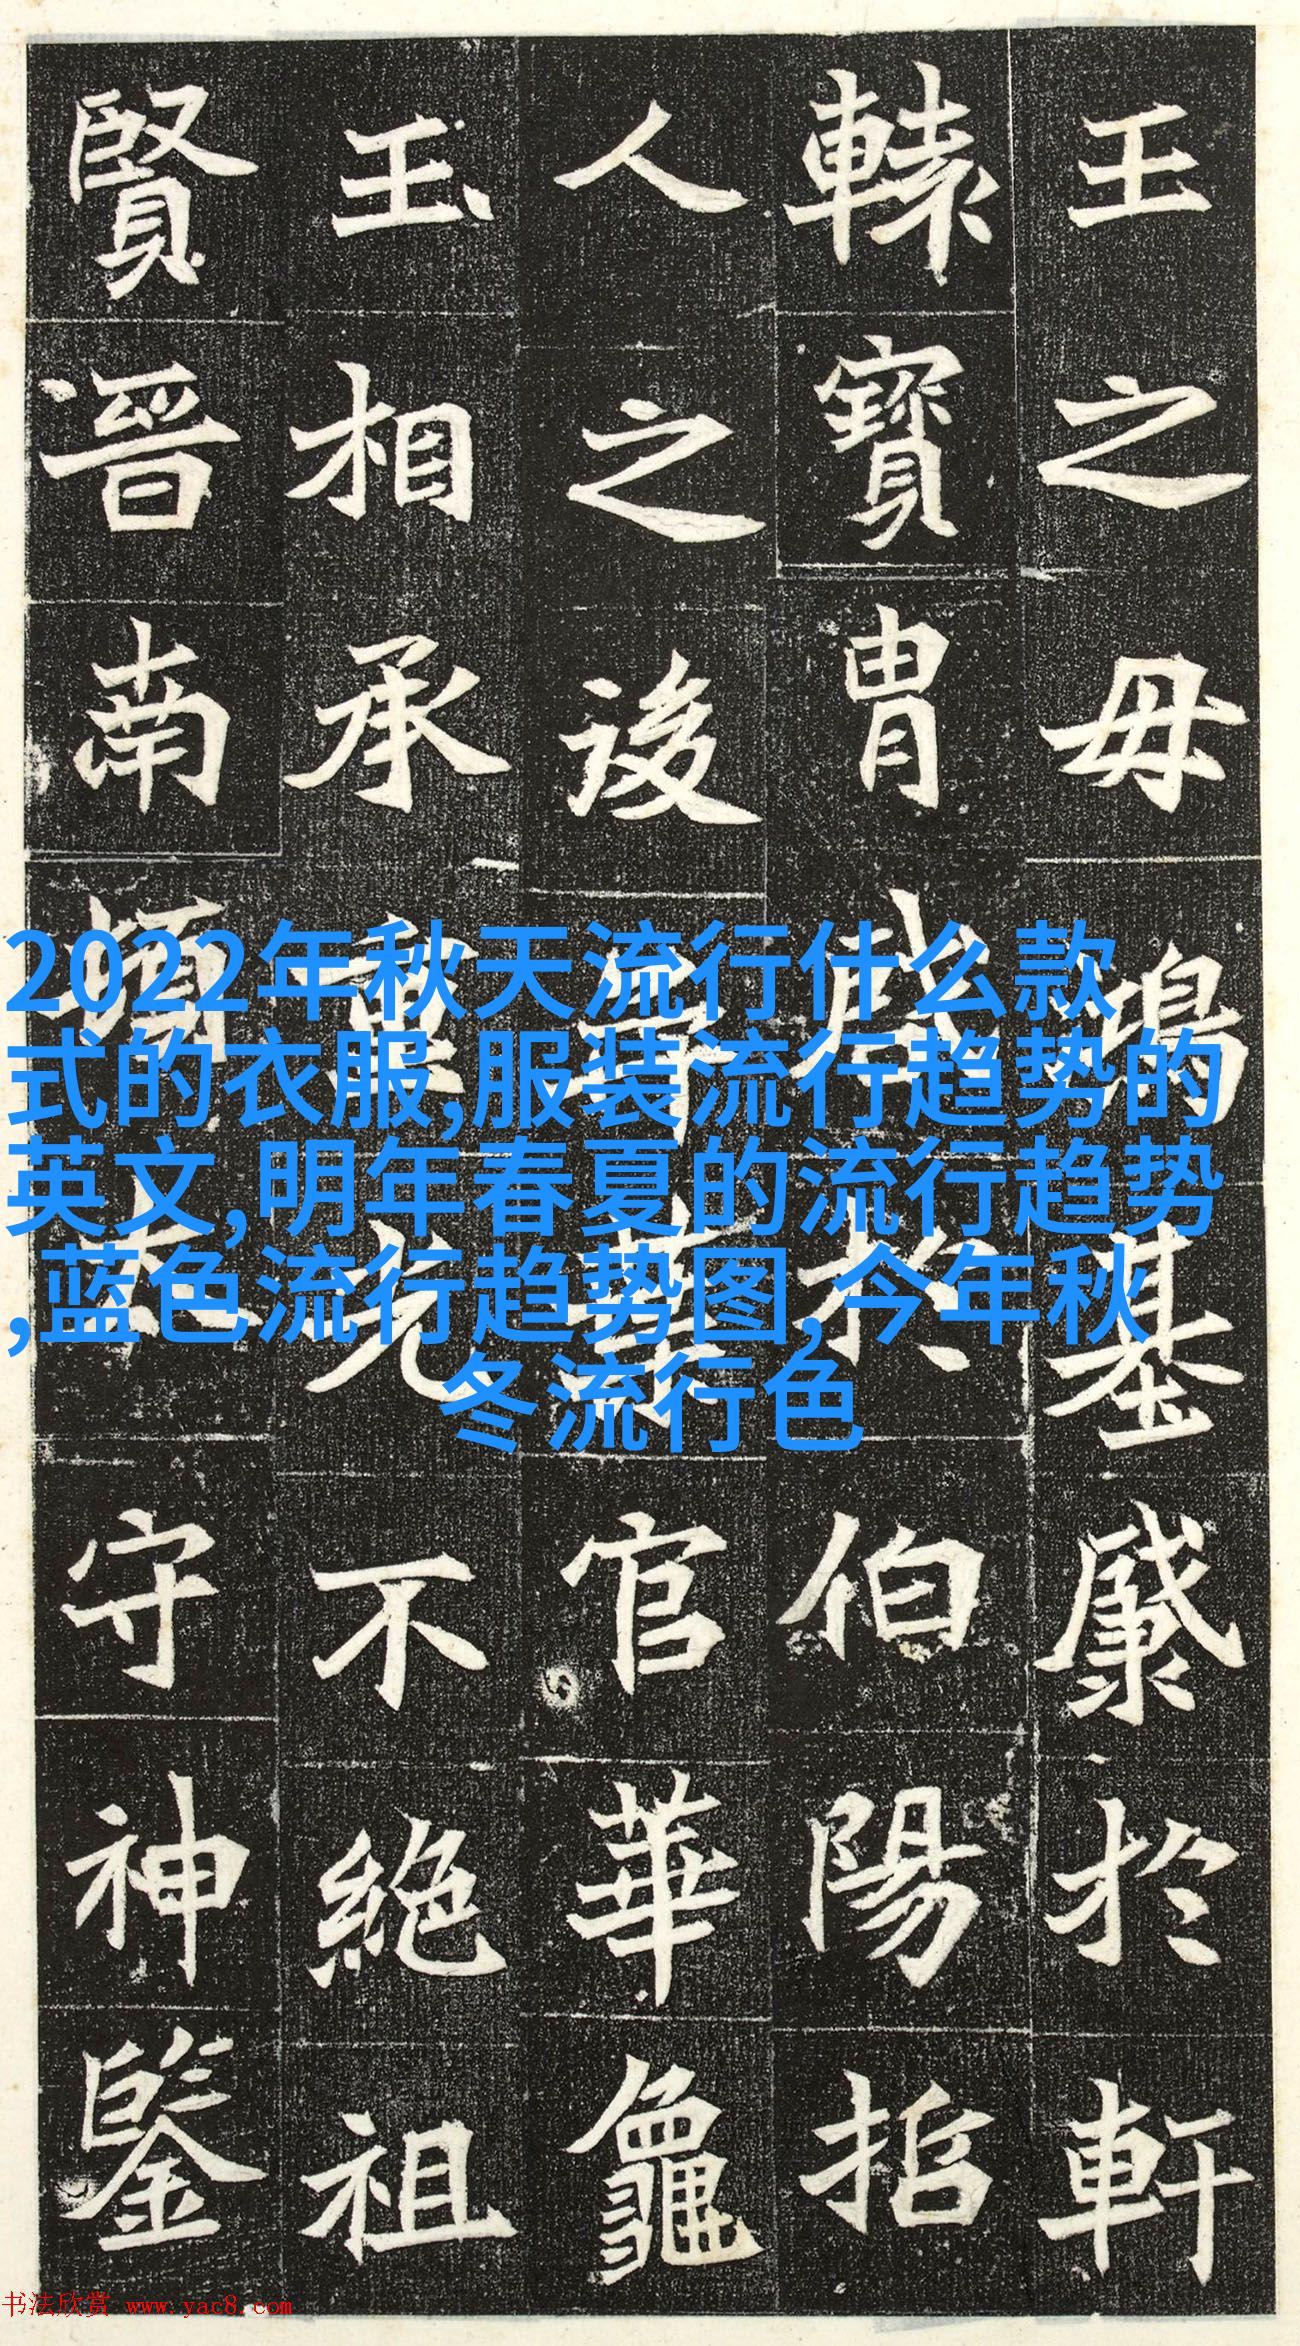 王之毋鴻基於軒
轅寶胄成於伯陽
人之後官華龜
玉相承重光不絕祖
賢晉南頓太守神鑒
2022年秋天流行什么款
式的衣服,服装流行趋势的
英文,明年春夏的流行趋势
,蓝色流行趋势图,今年秋
冬流行色
书法欣赏 www.yac8.com